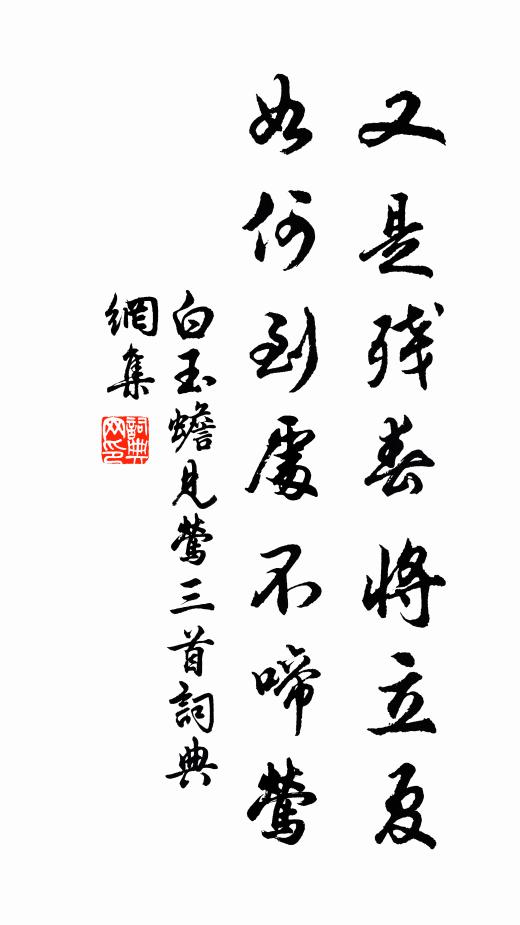 又是残春將立夏
如何到處不啼鶯
白玉蟾見鶯三首詞典
網集
詞典网印